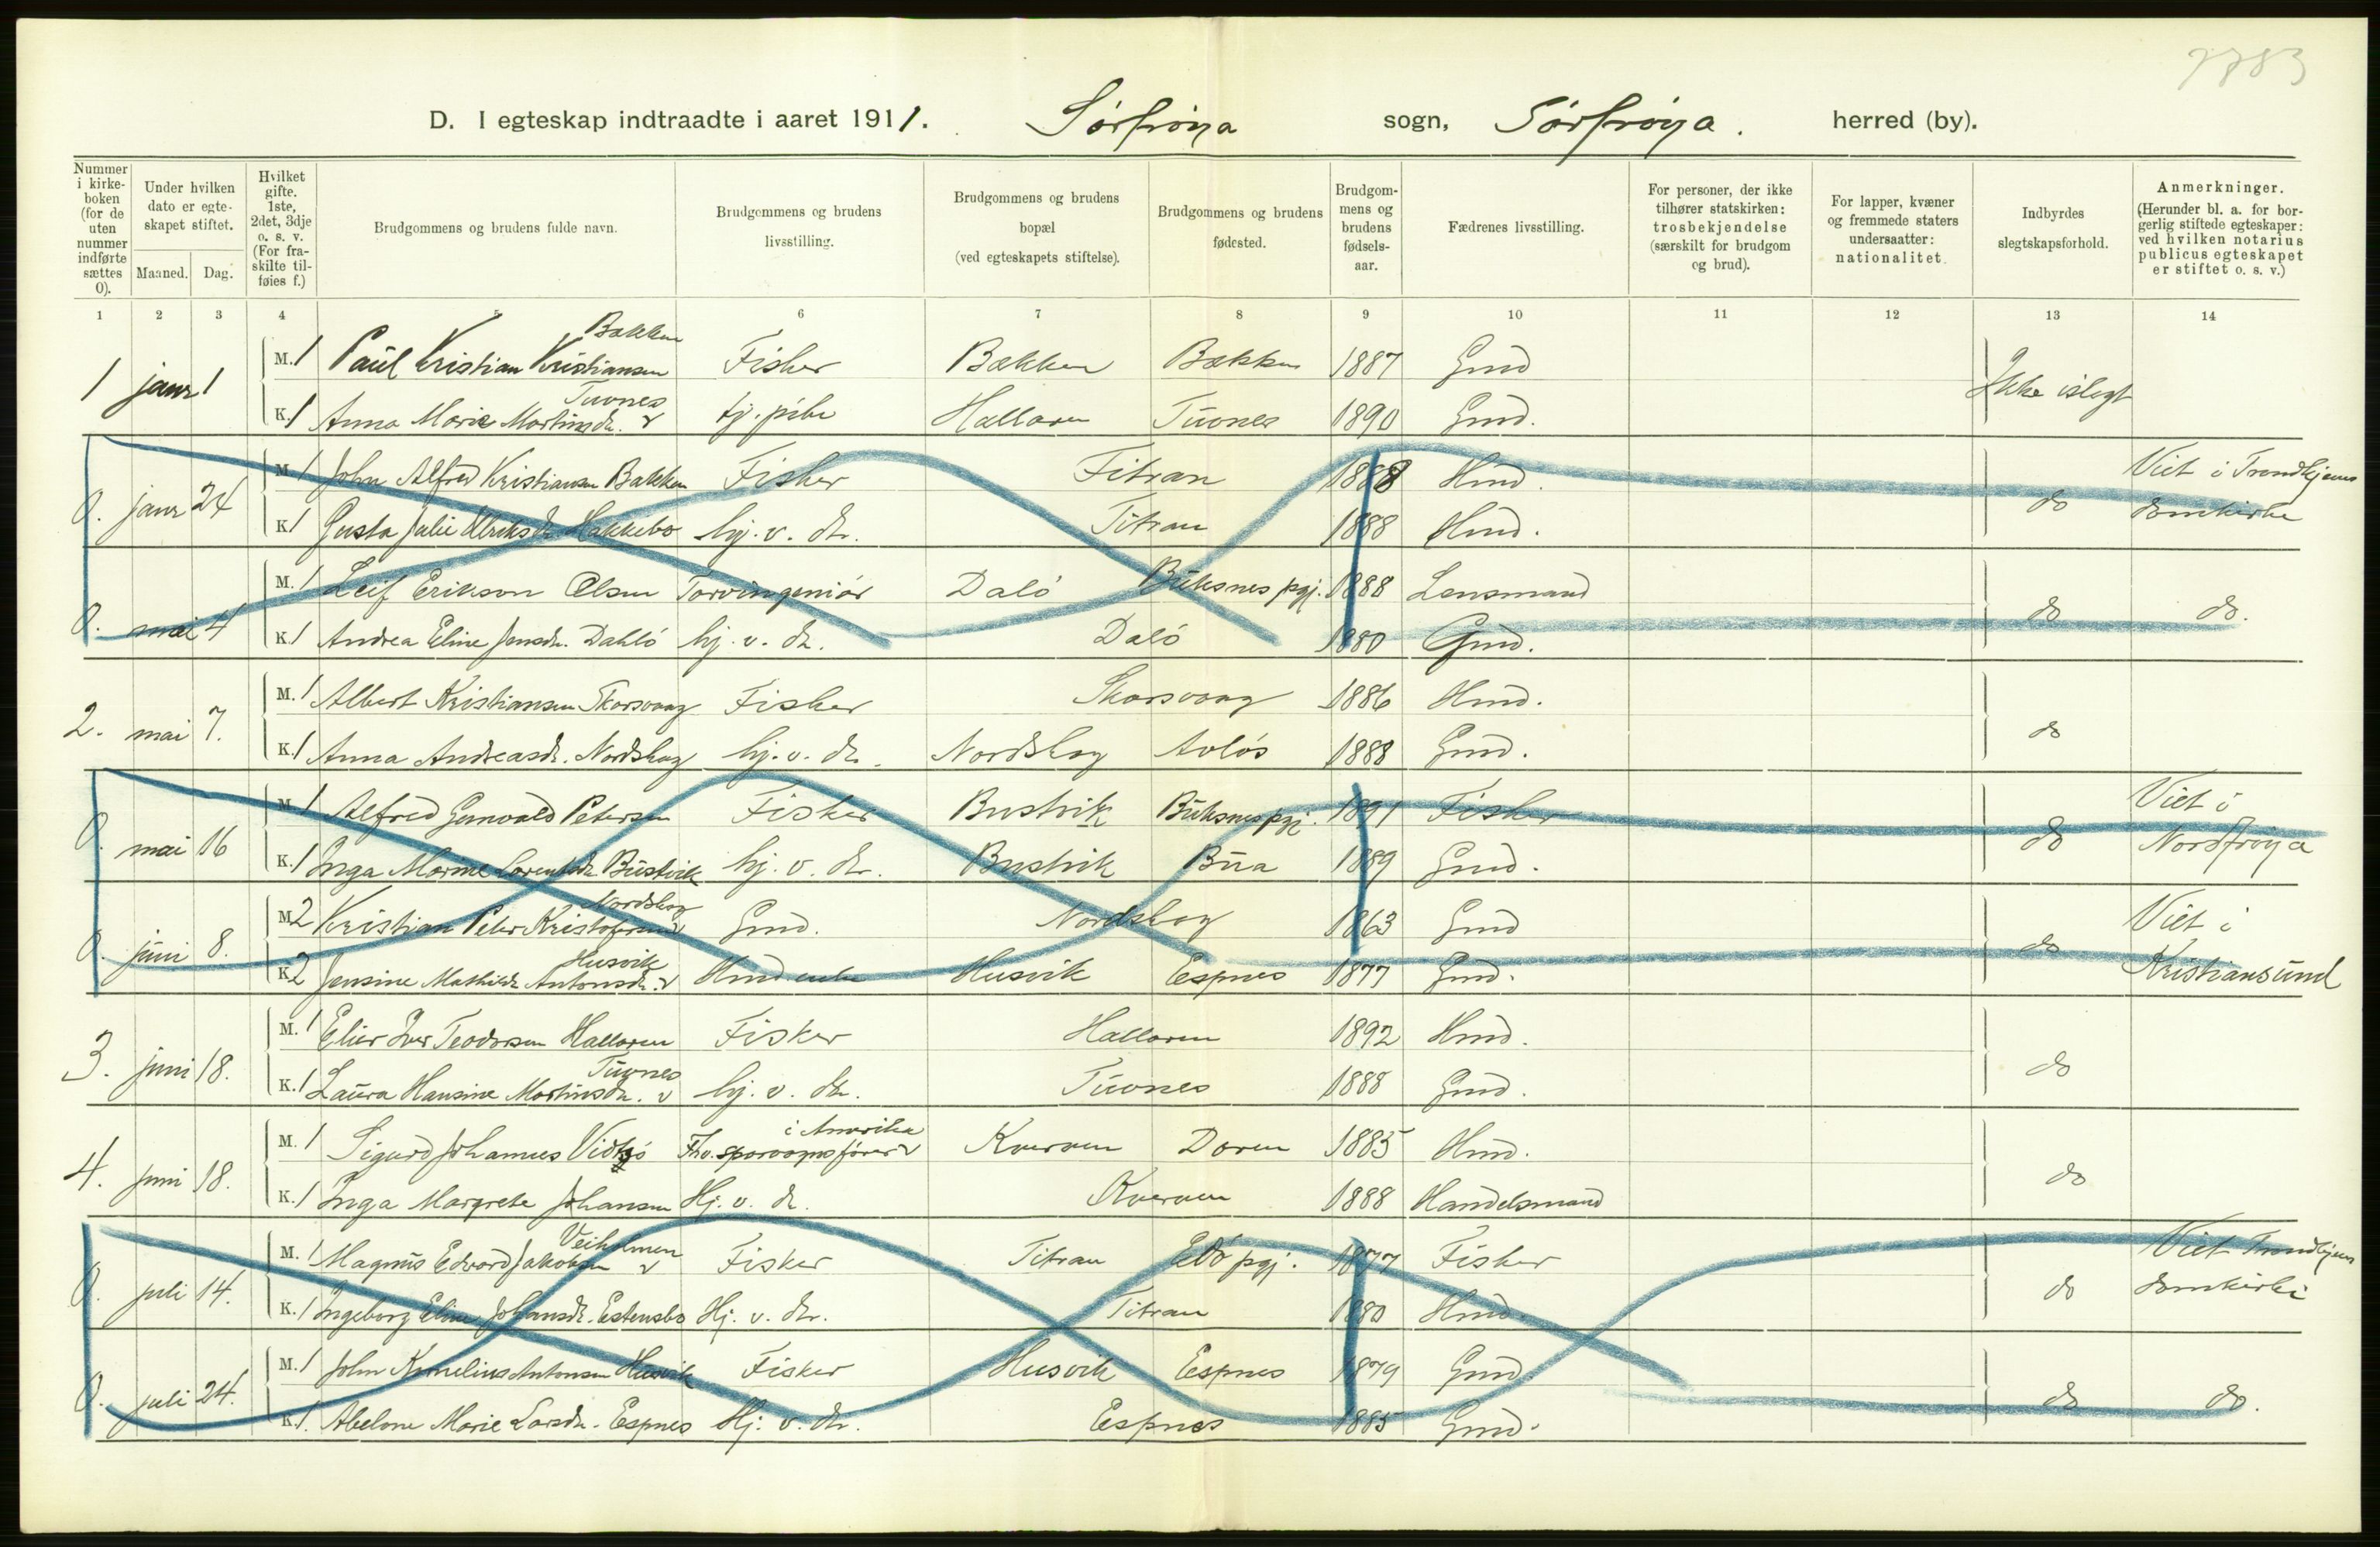 7783
D. I egteskap indtraadte i aaret 1911. Sørfrøya sogn, Sørfrøya. herred (by).
Nummer i kirkeboken (for de uten nummer indførte sættes 0).
Under hvilken dato er egteskapet stiftet.
Maaned. Dag.
Hvilket gifte. 1ste, 2det, 3dje o. s. v. (For fraskilte tilføies f.)
Brudgommens og brudens fulde navn.
Brudgommens og brudens livsstilling.
Brudgommens og brudens bopæl (ved egteskapets stiftelse).
Brudgommens og brudens fødested.
Brudgommens og brudens fødselsaar.
Fædrenes livsstilling.
For personer, der ikke tilhører statskirken: trosbekjendelse (særskilt for brudgom og brud).
For lapper, kvæner og fremmede staters undersaatter: nationalitet
Indbyrdes slegtskapsforhold.
Anmerkninger. (Herunder bl. a. for borgerlig stiftede egteskaper: ved hvilken notarius publicus egteskapet er stiftet o. s. v.)
1 2 3 4 5 6 7 8 9 10 11 12 13 14
1 janr 1 M. 1 Paul Kristian Kristiansen Bakken Fisker Bakken Bakken 1887 Gmd Ikke i slegt
K. 1 Anna Marie Martinsdr. Tuvnes tj. pike Hallaren Tuvnes 1890 Gmd.
0. janr 24 M 1 John Alfred Kristiansen Bakken Fisker Titran 1888 Hmd. do Viet i Trondhjems
K 1 Gusta Julie Ulriksdr Hakkebo hj. v. dr. Titran 1888 Hmd. domkirke
0. mai 4 M. 1 Leif Erikson Olsen Torvingeniör Dalö Buksnes pgj. 1888 Lensmand do do.
K. 1 Andrea Eline Jensdr. Dahlö hj. v. dr. Dalö 1880 Gmd.
2. mai 7. M. 1 Albert Kristiansen Skarsvaag Fisker Skarsvaag 1886 Hmd. do
K. 1 Anna Andreasdr. Nordskag hj. v. dr. Nordskag Avløs 1888 Gmd.
0. mai 16 M 1 Alfred Gunvald Petersen Fisker Bustvik Buksnes pgj. 1891 Fisker do Viet i
K. 1 Inga Marine Lorentsdr Bustvik hj. v. dr. Bustvik Bua 1889 Gmd. Nordfröya
0. juni 8. M 2 Kristian Peter Kristofersen Nordskag Gmd. Nordskag 1863 Gmd do Viet i
K 2 Jensine Mathilde Antonsdr. Husvik Hmd enke Husvik Espnes 1877 Gmd. Kristiansund
3. juni 18. M. 1 Elier Iver Teodorsen Hallaren Fisker Hallaren 1892 Hmd. do
K. 1 Laura Hansine Martinsdr. Tuvnes hj. v. dr. Tuvnes 1888 Gmd.
4. juni 18. M. 1 Sigurd Johannes Vidsö Fhv. sporvognsfører i Amerika Kverven Daren 1885 Hmd. do
K. 1 Inga Margrete Johansen Hj. v. dr. Kverven 1888 Handelsmand
0. juli 14. M. 1 Magnus Edvard Jakobsen Veiholmen Fisker Titran Edö pgj. 1877 Fisker do Viet Trondhjems
K. 1 Ingeborg Eline Johansdr. Estensbo Hj. v. dr. Titran 1880 Hmd. domkirke
0. juli 24. M. 1 John Kornelius Antonsen Husvik Fisker Husvik Espnes 1879 Gmd. do do.
K. 1. Abelone Marie Larsdr. Espnes Hj. v. dr. Espnes 1885 Gmd.